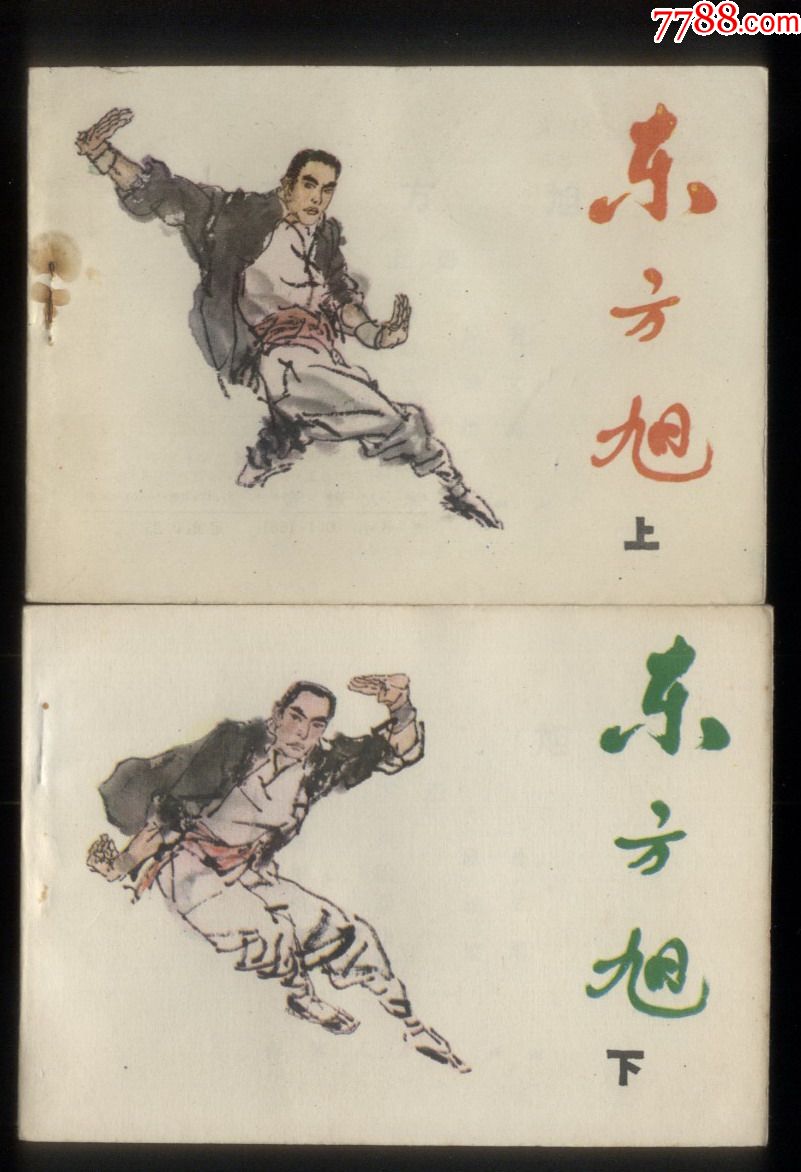 7788.com
东方旭
上
东方旭
下